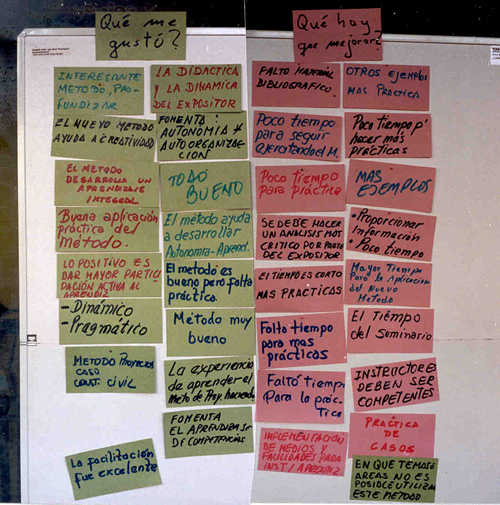 Qué me
gustó?
INTERESANTE
METODO, PRO-
FUNDIZAR
EL NUEVO METODO
AYUDA A CREATIVIDAD
EL METODO
DESARROLLA UN
APRENDIZAJE
INTEGRAL
Buena aplicación
práctica del
Método.
LO POSITIVO ES
DAR MAYOR PARTICI
PACIÓN ACTIVA AL
APRENDIZ
- Dinámico
- Pragmático
METODO Proyectos
CASO
CONST. CIVIL
La facilitación
fue excelente
LA DIDACTICA
Y LA DINAMICA
DEL EXPOSITOR
FOMENTA:
AUTONOMIA Y
AUTO ORGANIZA
CION
TODO
BUENO
El metodo ayuda
a desarrollar
Autonomia-Aprend.
El metodo es
bueno pero falta
práctica.
Método muy
bueno
La experiencia
de aprender el
Met. de Proy. haciendo
FOMENTA
EL APRENDIZAJE
DE COMPETENCIAS
Qué hay
que mejorar?
FALTO MATERIAL
BIBLIOGRAFICO.
Poco tiempo
para seguir
Ejercitando el M.
Poco tiempo
para práctica
SE DEBE HACER
UN ANALISIS MAS
CRITICO POR PARTE
DEL EXPOSITOR
El TIEMPO ES CORTO
MAS PRÁCTICAS
Falto tiempo
para mas
prácticas
Faltó tiempo
Para la prác-
tica
IMPLEMENTACIÓN
DE MEDIOS Y
FACILIDADES PARA
INST/APRENDIZ
OTROS Ejemplos
MAS PRACTICA
Poco tiempo p'
hacer más
prácticas
MAS
EJEMPLOS
• Proporcionar
Información
• Poco tiempo
Mayor Tiempo
Para la Aplicacion
del Nuevo
Metodo
El Tiempo
del Seminario
INSTRUCTORES
DEBEN SER
COMPETENTES
PRÁCTICA
DE
CASOS
EN QUE TEMAS O
AREAS NO ES
POSIBLE UTILIZAR
ESTE METODO